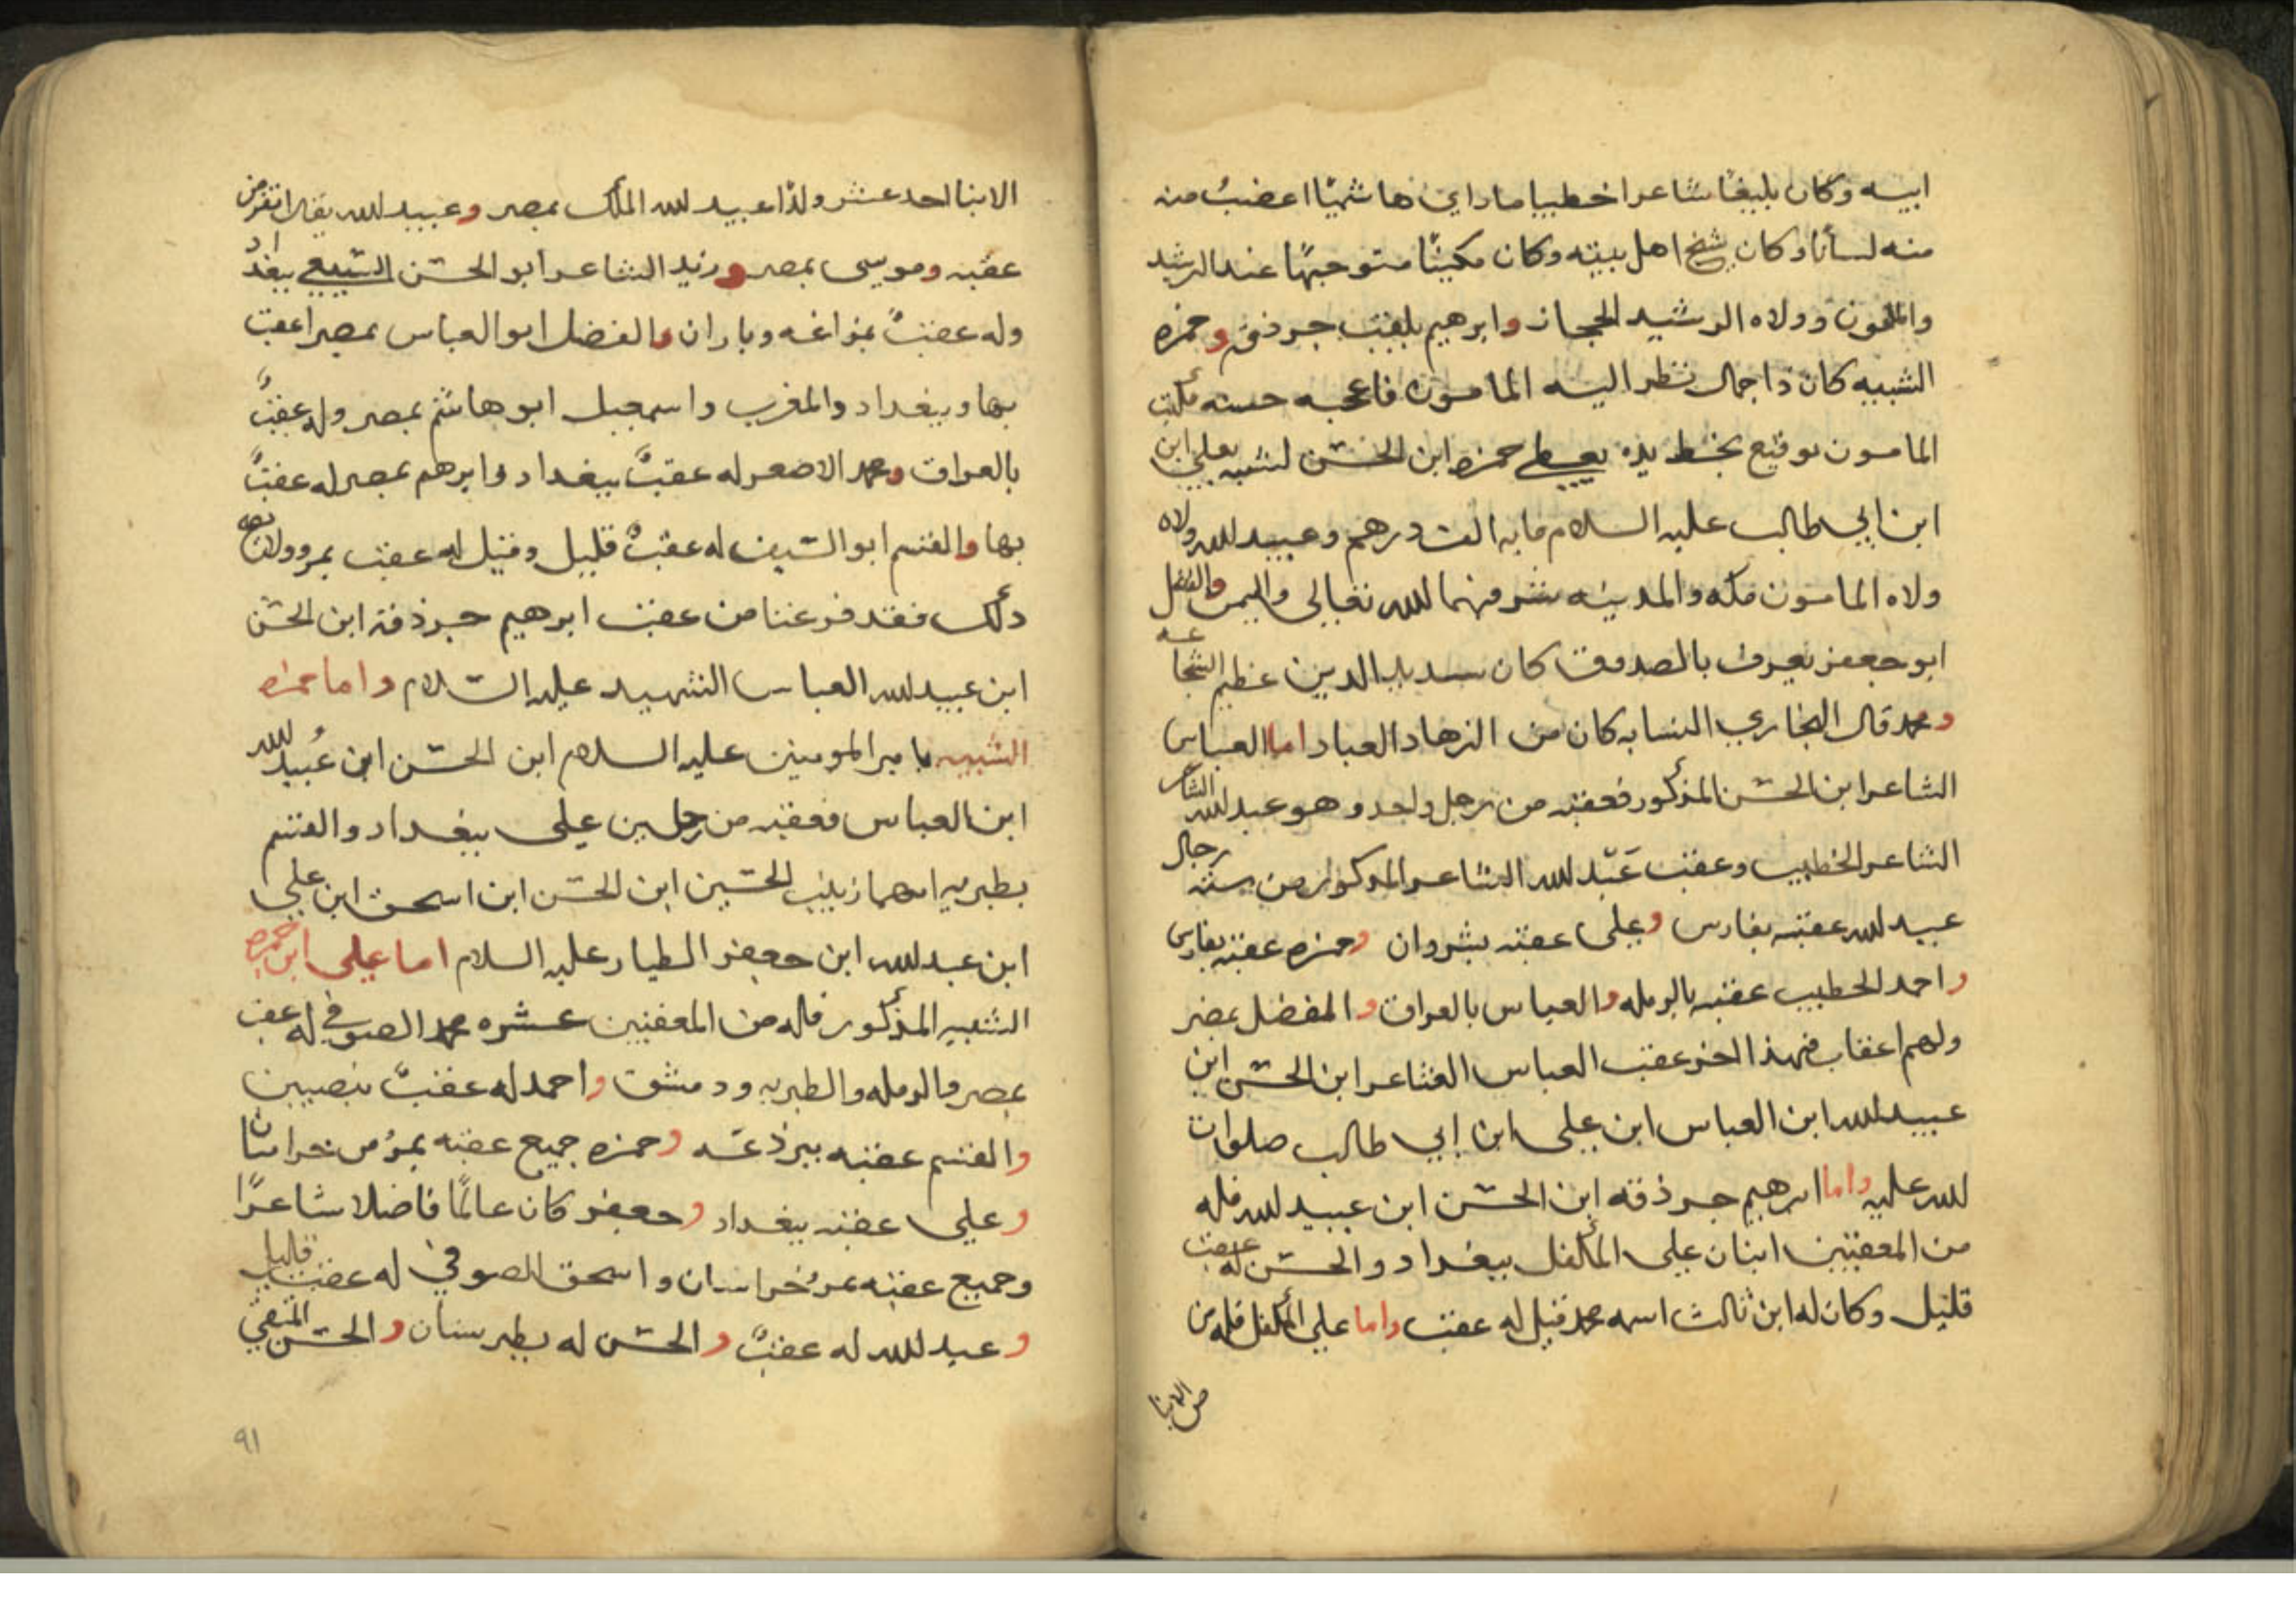 ابيه وكان بليغا شاعرا خطيبا ما راي هاشميا اعضب منه
منه لسانا وكان شيخ اهل بيته وكان مكينا متوجها عند الرشيد
والمامون وولاه الرشيد الحجاز وابرهيم يلقب جرذقه وحمزه
الشبيه كان ذا جمال نظر اليه المامون فاعجبه حسنه فكتب
المامون توقيع بخط يده يعطى حمزه ابن الحسن لشبهه بعلي ابن
ابن ابي طالب عليه السلام مايه الف درهم وعبيد لله ولاه
ولاه المامون مكه والمدينه شرفهما لله تعالى واليمن والفضل
ابو جعفر يعرف بالصدوق كان سديد الدين عظيم الشجاعه
ومحمد قال البخاري النسابه كان من الزهاد العباد اما العباس
الشاعر ابن الحسن المذكور فعقبه من رجل واحد وهو عبد لله الشاعر
الشاعر الخطيب وعقب عبد لله الشاعر المذكور من سته رجال
عبيد لله عقبه بفارس وعلى عقبه بشروان وحمزه عقبه بفارس
واحمد الخطيب عقبه بالرمله والعباس بالعراق والمفضل بمصر
ولهم اعقاب فهذا اخر عقب العباس الشاعر ابن الحسن ابن
عبيد لله ابن العباس ابن علي ابن ابي طالب صلوات
لله عليه واما ابرهيم جرذقه ابن الحسن ابن عبيد لله فله
من المعقبين ابنان علي المكفل ببغداد والحسن له عقب
قليل وكان له ابن ثالث اسمه محمد قيل له عقب واما علي المكفل فله من
من الابنا
الابنا احد عشر ولدا عبيد لله الملك بمصر وعبيد لله يقال انقرض
عقبه وموسى بمصر وزيد الشاعر ابو الحسن ببغداد
وله عقب بمراغه وباران والفضل ابو العباس بمصر اعقب
بها وببغداد والمغرب واسمعيل ابو هاشم بمصر وله عقب
بالعراق ومحمد الاصغر له عقب ببغداد وابرهيم بمصر له عقب
بها والقسم ابو السيف له عقب قليل وقيل له عقب بمرو
ذلك فقد فرغنا من عقب ابرهيم جرذقه ابن الحسن
ابن عبيد لله العباس الشهيد عليه السلام واما حمزه
الشبيه بامير المومنين عليه السلام ابن الحسن ابن عبيد لله
ابن العباس فعقبه من رجلين علي ببغداد والقسم
بطبريه امهما زينب الحسين ابن الحسن ابن اسحق ابن علي
ابن عبد لله ابن جعفر الطيار عليه السلام اما علي ابن حمزه
الشبيه المذكور فله من المعقبين عشره محمد الصوفي له عقب
بمصر والرمله والطبريه ودمشق واحمد له عقب بنصيبين
والقسم عقبه ببرذعه وحمزه جميع عقبه بمرو من خراسان
وعلي عقبه ببغداد وجعفر كان عالما فاضلا شاعرا
وجميع عقبه بمرو خراسان واسحق الصوفي له عقب قليل
وعبد لله له عقب والحسن له بطبرستان والحسن
٩١